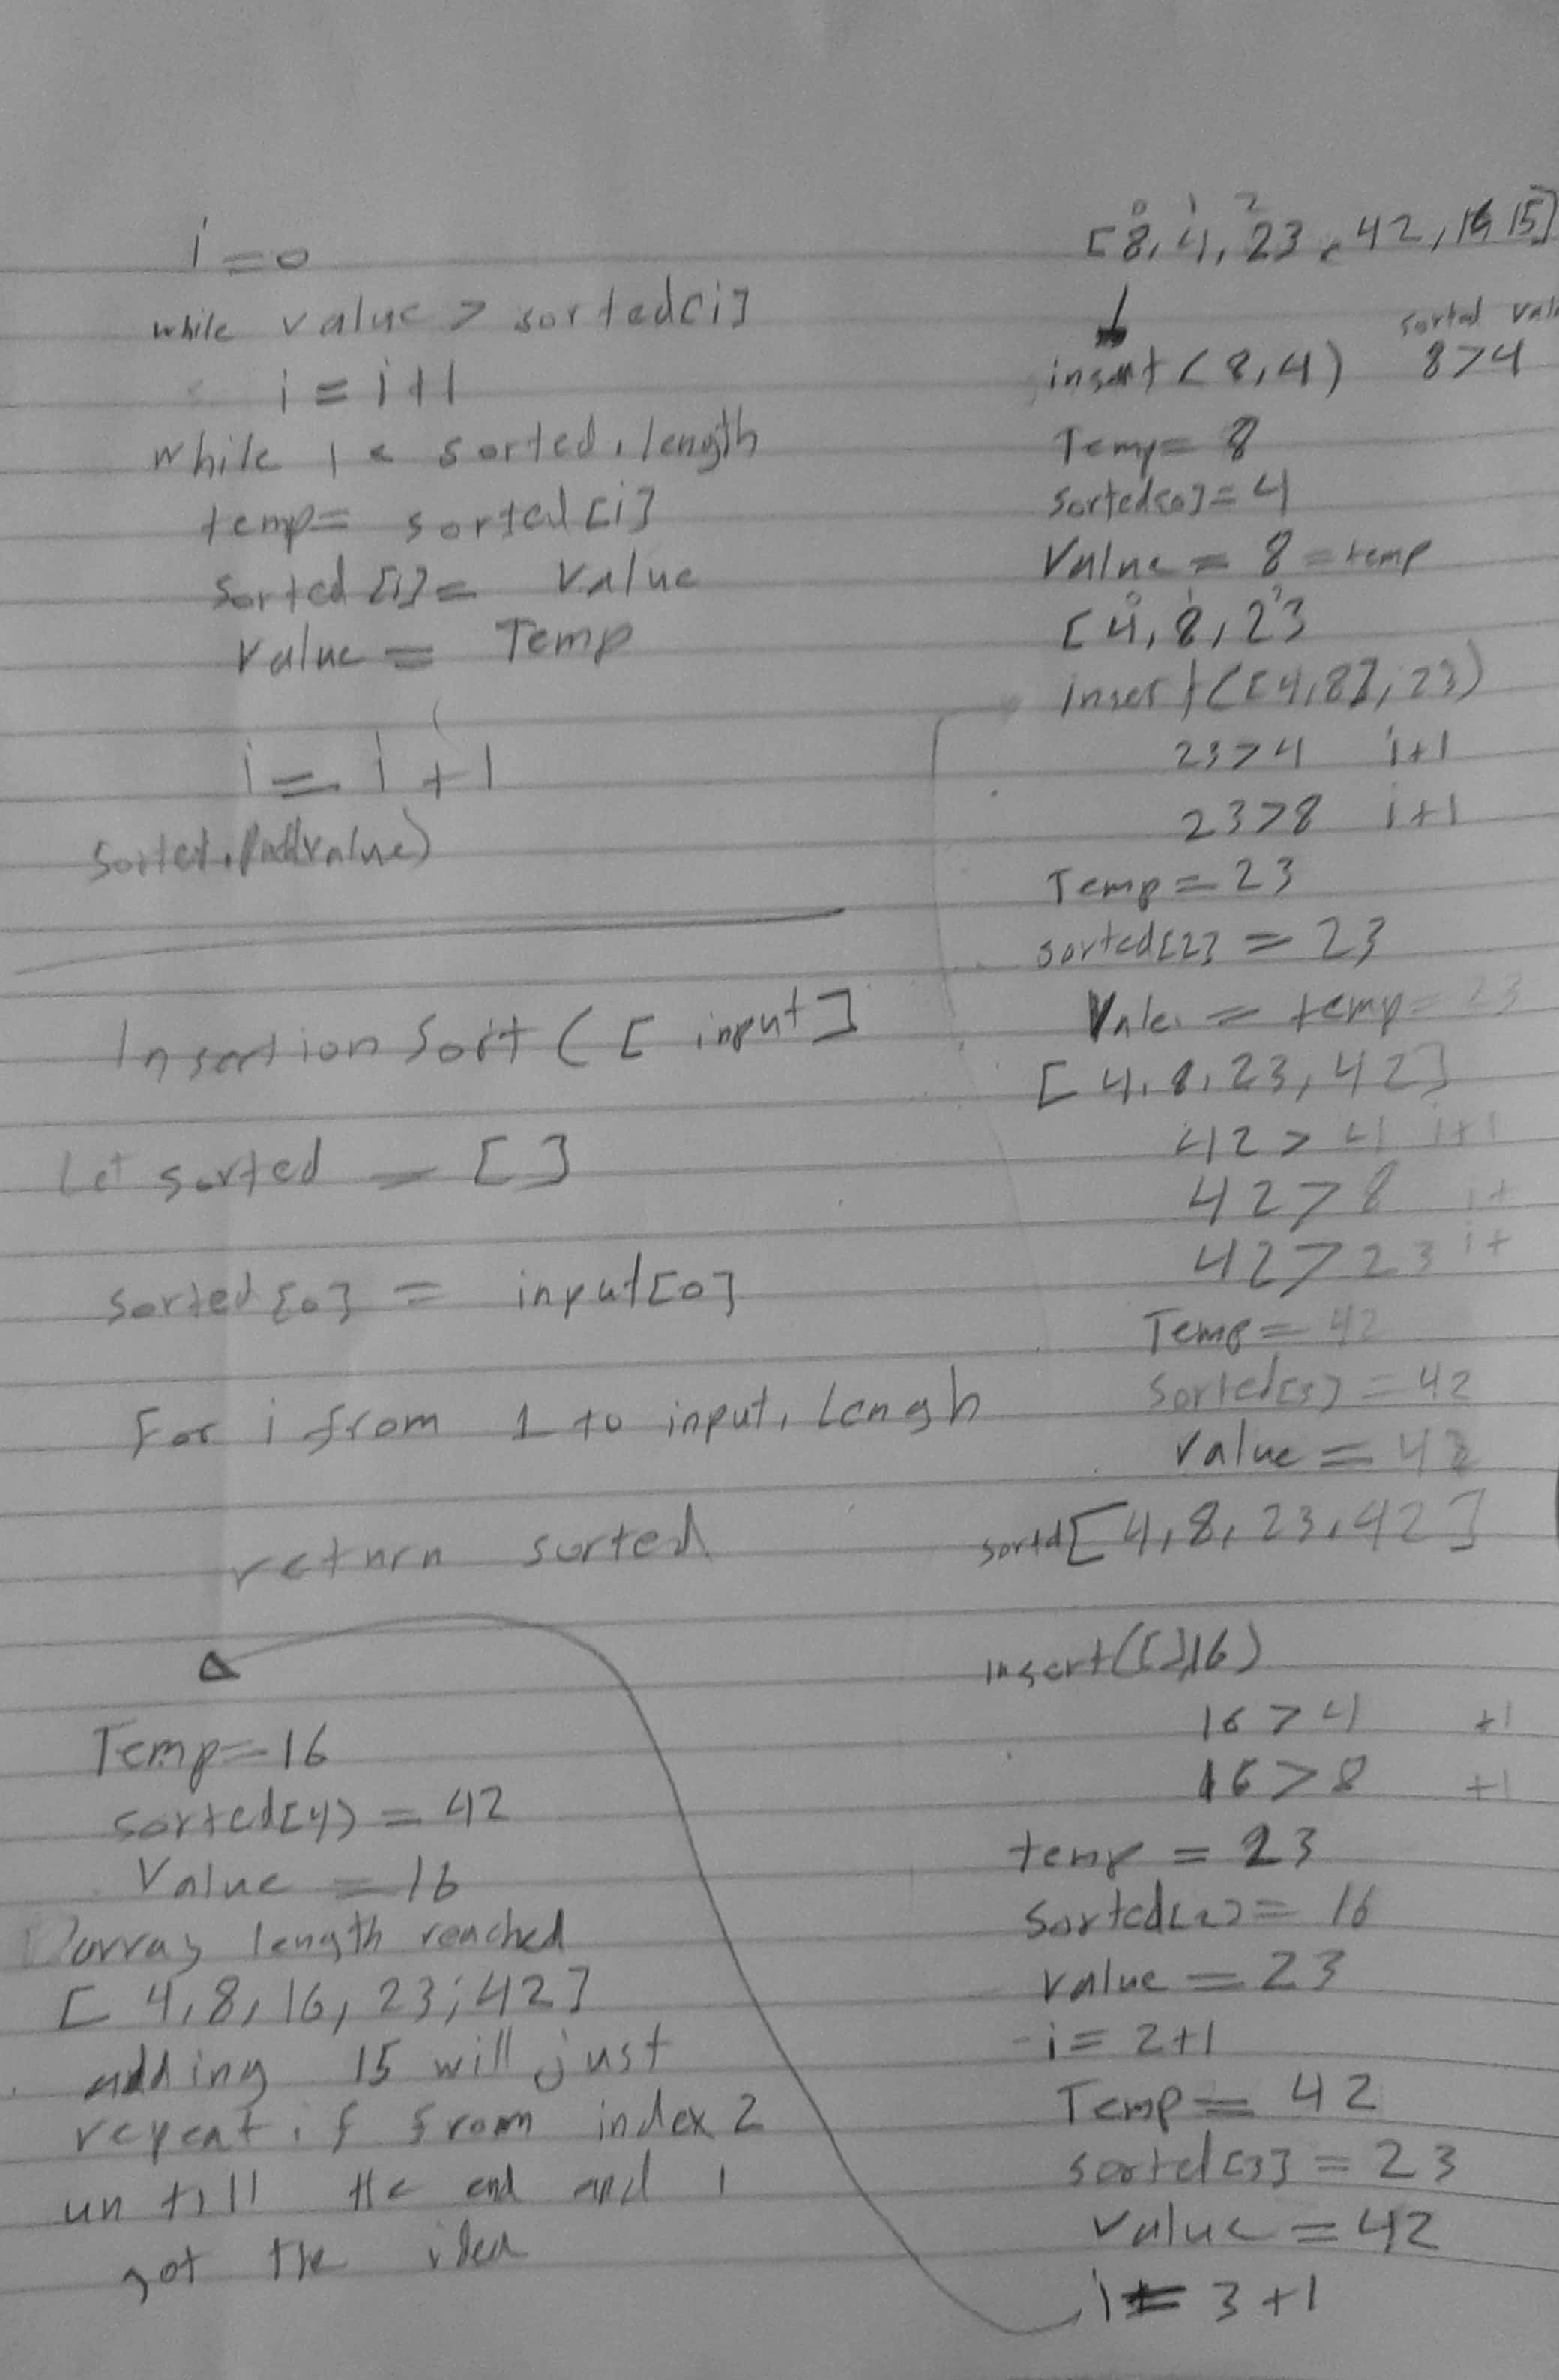 i = 0
while value > sorted[i]
i = i+1
while i < sorted.length
temp = sorted[i]
sorted[i] = value
value = Temp
i = i + 1
Insertion Sort ( [ input ]
Let sorted = [ ]
sorted [0] = input[0]
For i from 1 to input. Lengh
return sorted
Temp = 16
sorted[4] = 42
Value = 16
array length reached
[ 4,8,16,23,42]
adding 15 will just
repeat from index 2
un till the end and i
got the idea
0 1 2
[8,4,23,42,16 15]
sorted
insert (8,4) 8>4
Temp = 8
sorted[0] = 4
Value = 8 = temp
0 1 2
[4,8,23
insert([4,8],23)
23>4 i+1
23>8 i+1
Temp = 23
sorted[2] = 23
= temp = 23
[4,8,23,42]
42>4 i+1
42>8 i+
42>23 i+
Temp = 42
Sorted[3] = 42
value = 42
sortd [4,8,23,42]
insert([],16)
16>4 +1
16>8 +1
temp = 23
Sorted[2] = 16
value = 23
i = 2+1
Temp = 42
sorted[3] = 23
value = 42
i = 3+1